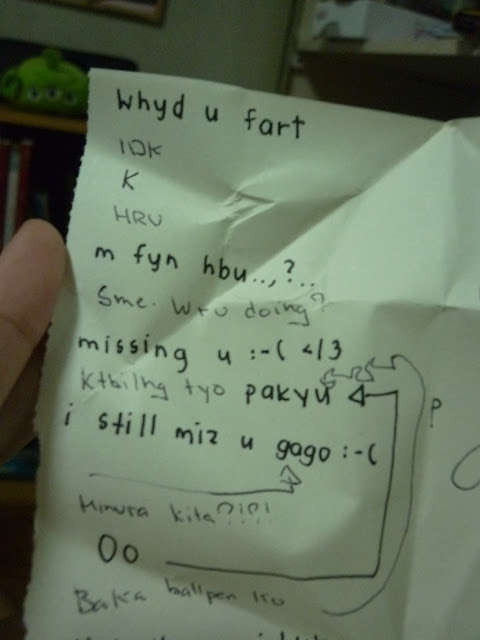 Whyd u fart
IDK
K
HRU
m fyn hbu..,?..
Sme. Wru doing?
missing u :-( <|3
Ktbilng tyo pakyu
P
i still miz u gago :-(
Minura kita?!?!
Oo
Baka ballpen